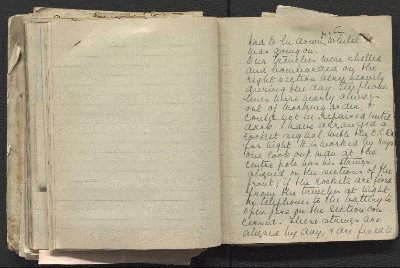 had to lie down, whilst it
was going on.
Our trenches were shelled
and bombarded on the
right section very heavily
during the day. Telephone
lines were nearly always
out of working order, &
could not be repaired until
dark. I have arranged a
rocket signal with the O.C. R.A.
for night. It is worked by
one look out man at the
centre pole has his strings
aligned on the sections of the
front; if the rockets are fired
from the trenches at night,
he telephones to the battery to
open fire on the section con
cerned. These strings are
aligned by day, & are fixed to